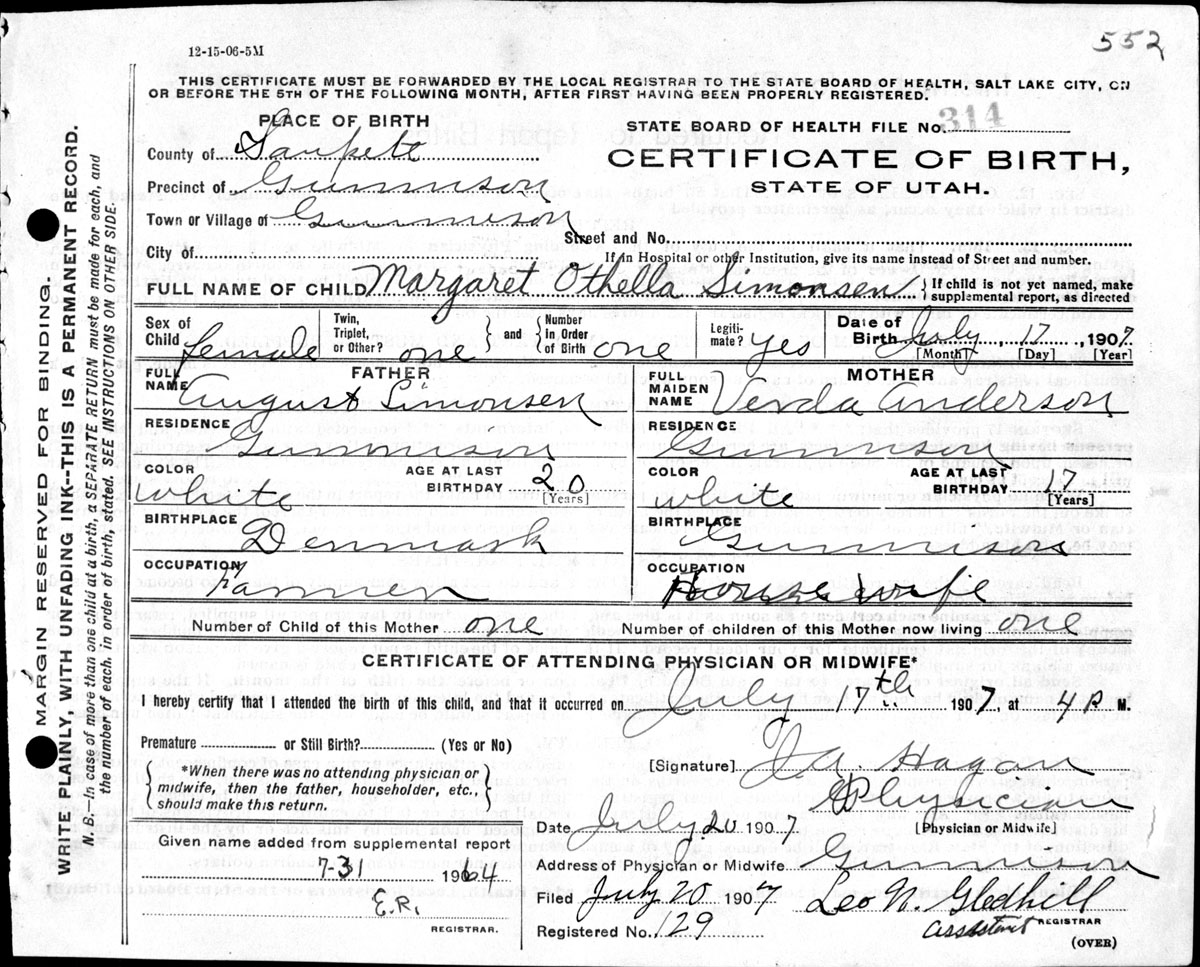 552
12-15-06-5M
THIS CERTIFICATE MUST BE FORWARDED BY THE LOCAL REGISTRAR TO THE STATE BOARD OF HEALTH, SALT LAKE CITY, ON
OR BEFORE THE 5TH OF THE FOLLOWING MONTH, AFTER FIRST HAVING BEEN PROPERLY REGISTERED.
MARGIN RESERVED FOR BINDING.
WRITE PLAINLY, WITH UNFADING INK--THIS IS A PERMANENT RECORD.
N. B.—In case of more than one child at a birth, a SEPARATE RETURN must be made for each, and
the number of each, in order of birth, stated. SEE INSTRUCTIONS ON OTHER SIDE.
PLACE OF BIRTH
STATE BOARD OF HEALTH FILE No. 314
County of Sanpete
CERTIFICATE OF BIRTH,
Precinct of Gunnison
STATE OF UTAH.
Town or Village of Gunnison
Street and No.
City of
If in Hospital or other Institution, give its name instead of Street and number.
FULL NAME OF CHILD Margaret Othella Simonsen { If child is not yet named, make supplemental report, as directed
Sex of Child Female Twin, Triplet, or Other? one } and { Number in Order of Birth one Legitimate? yes Date of Birth July 17, 1907
[Month] [Day] [Year]
FATHER
FULL NAME August Simonsen
RESIDENCE Gunnison
COLOR White AGE AT LAST BIRTHDAY 20 [Years]
BIRTHPLACE Denmark
OCCUPATION Farmer
MOTHER
FULL MAIDEN NAME Verda Anderson
RESIDENCE Gunnison
COLOR White AGE AT LAST BIRTHDAY 17 [Years]
BIRTHPLACE Gunnison
OCCUPATION Housewife
Number of Child of this Mother one Number of children of this Mother now living one
CERTIFICATE OF ATTENDING PHYSICIAN OR MIDWIFE*
I hereby certify that I attended the birth of this child, and that it occurred on July 17th 1907, at 4 P M.
Premature or Still Birth? (Yes or No)
{ *When there was no attending physician or midwife, then the father, householder, etc., should make this return. }
[Signature] J A. Hagan
Physician
[Physician or Midwife]
Date July 20 1907
Given name added from supplemental report
7-31 1964
E.R.
REGISTRAR.
Address of Physician or Midwife Gunnison
Filed July 20 1907 Leo N. Gledhill
Assistant REGISTRAR
Registered No. 129
(OVER)